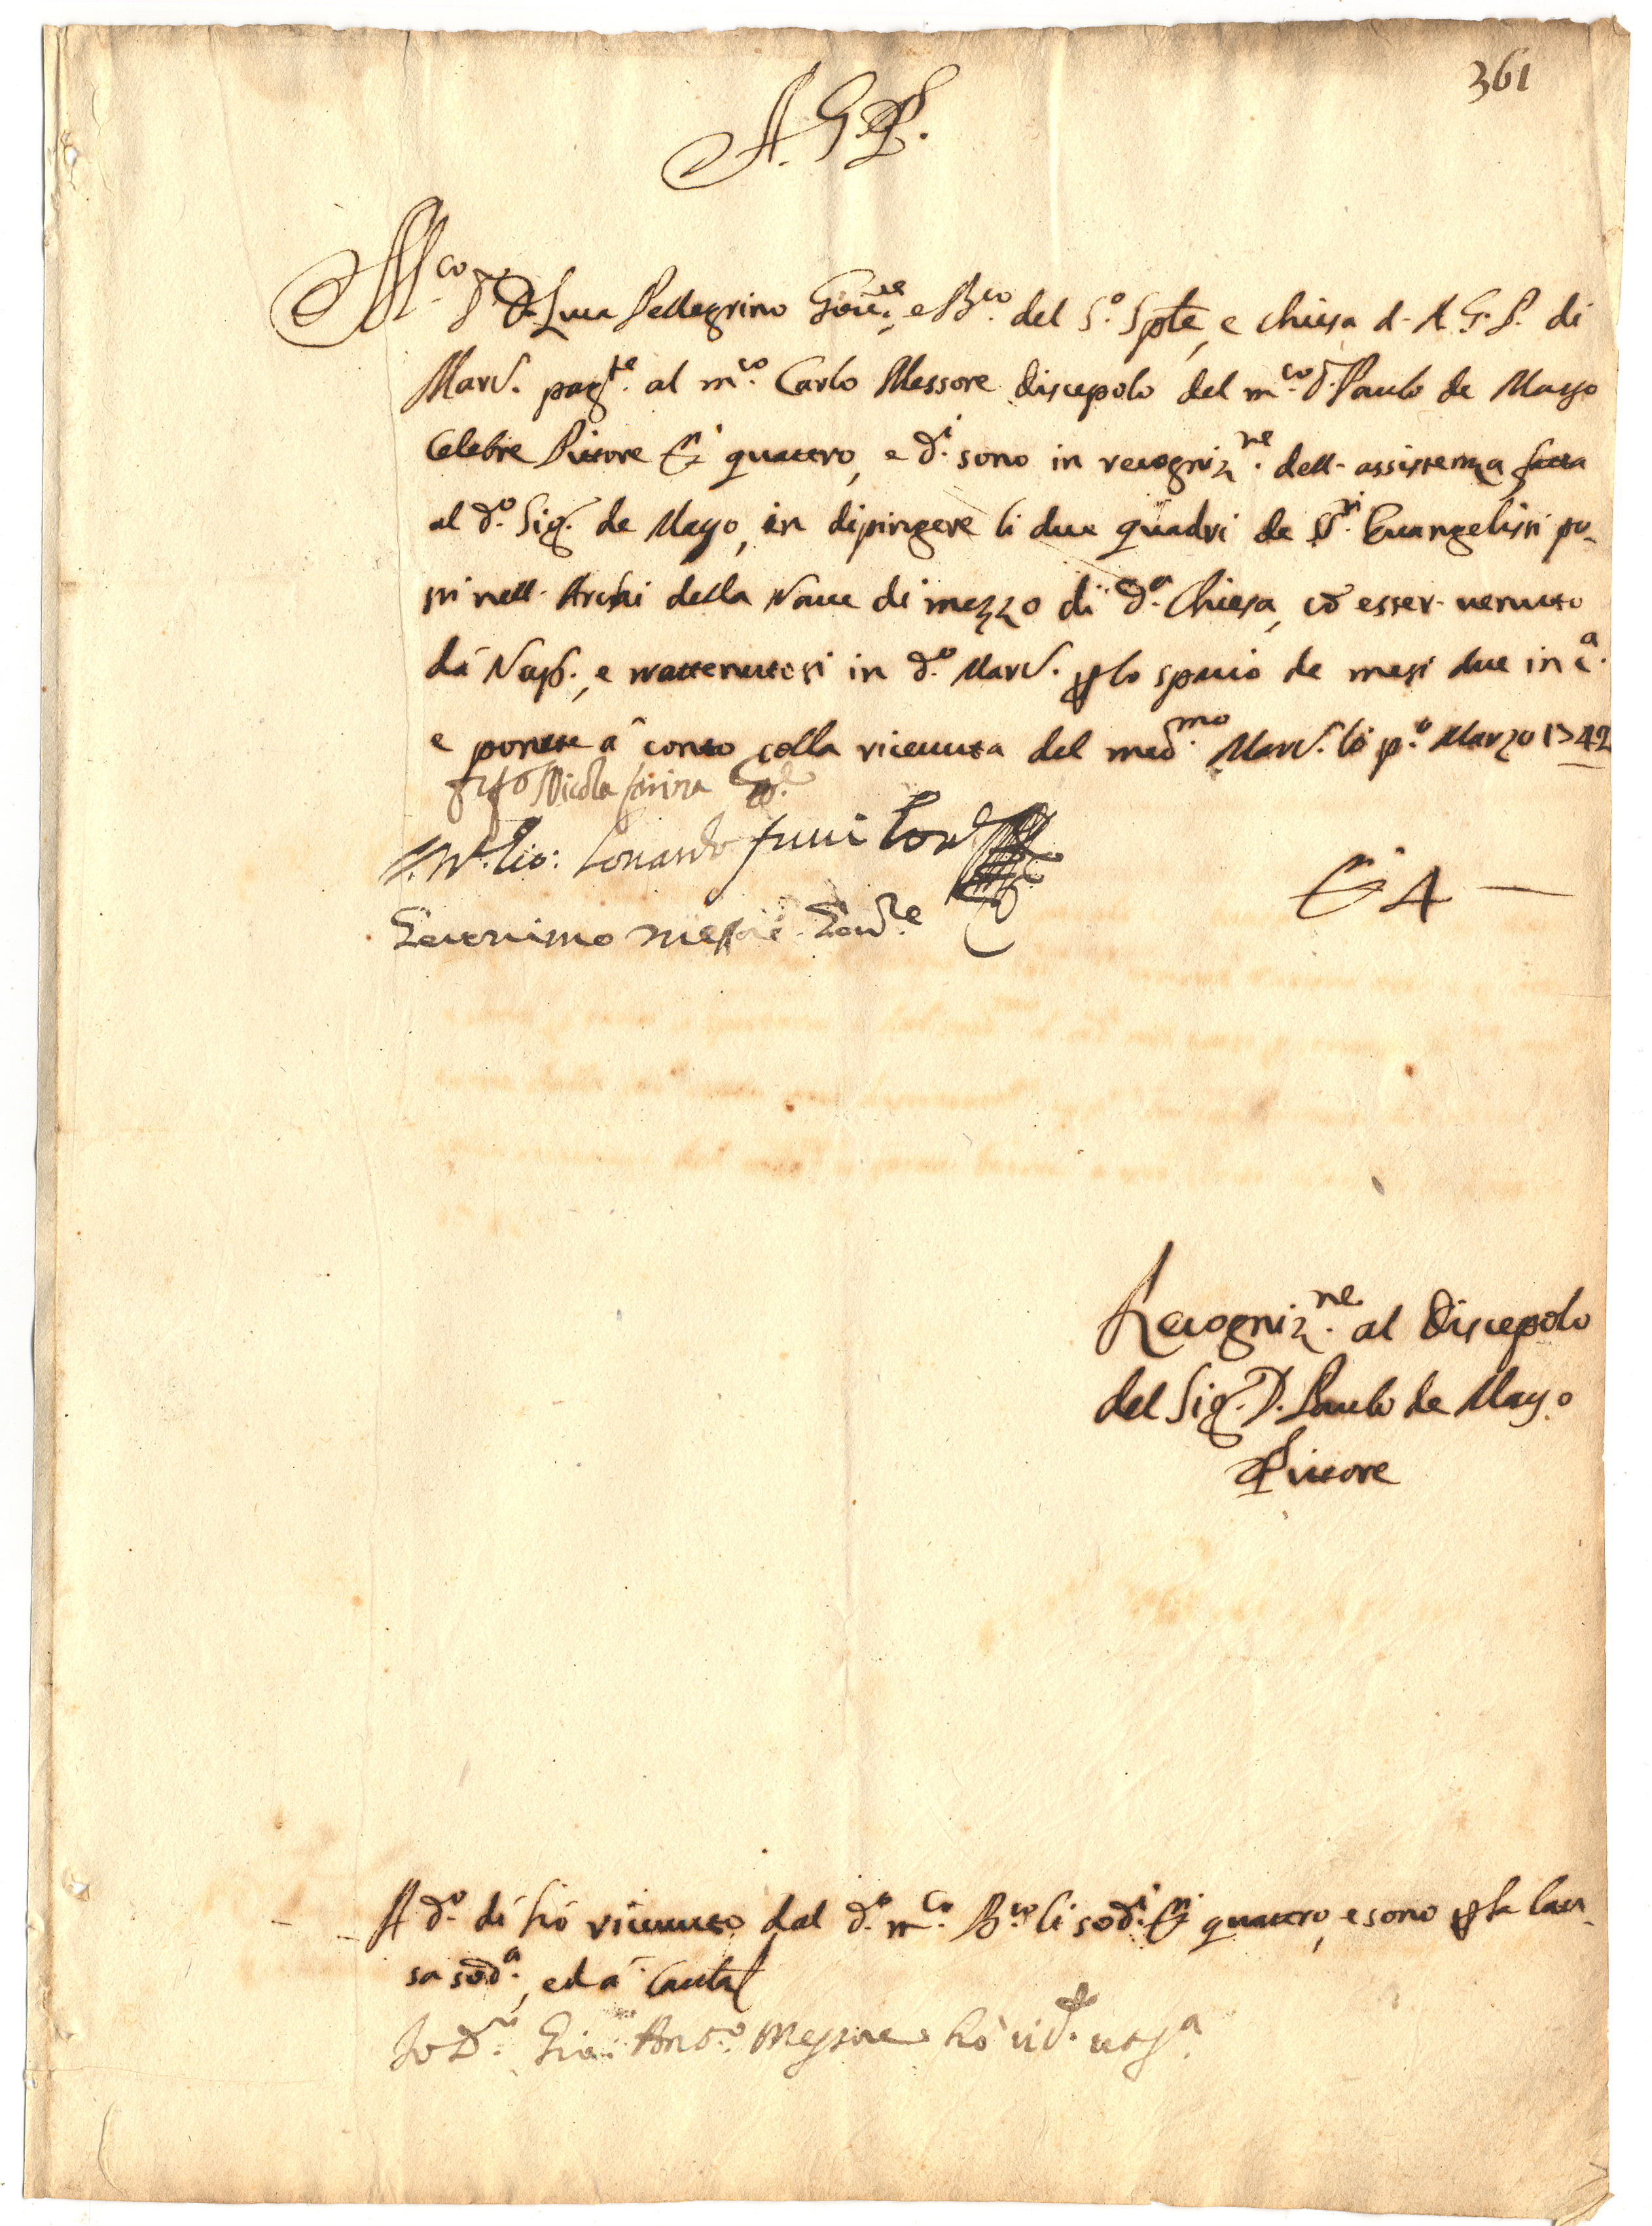 361
A. G. P.
M.co S.r D. Luca Pellegrino Gov.re, e B.co del S.o Sp.le, e Chiesa d. A. G. P. di
Marc. pag.te al m.co Carlo Messore discepolo del m.co S.r Paulo de Mayo
Celebre Pittore D.ti quattro, e d.i sono in recogniz.ne dell. assistenza fatta
al d.o Sig. de Mayo, in dipingere li due quadri de S.ti Evangelisti po-
sti nell. Archi della Nave di mezzo di d.a Chiesa, cō esser venuto
dà Nap., e trattenutosi in d.o Marc. p lo spatio de mesi due in c.a
e ponete à conto colla ricevuta del med.mo Marc. li p.o Marzo 1742
Nicola Farina
Gio: Lonardo
D.ti 4 —
Geronimo Messore Gov.re
Recogniz.ne al Discepolo
del Sig. D. Paulo de Mayo
Pittore
A d.o dì hò ricevuto dal d.o m.co B.co li sod.i D.ti quattro, e sono p la cau-
sa sod.a, ed à cautela
Io D.r Gio: Ant.o Messore hò ric. ut s.a